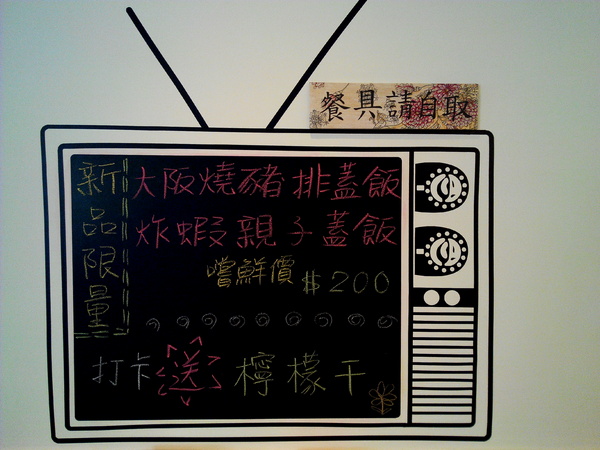 餐具請自取
新品限量
大阪燒豬排蓋飯
炸蝦親子蓋飯
嚐鮮價 $200
打卡送檸檬干